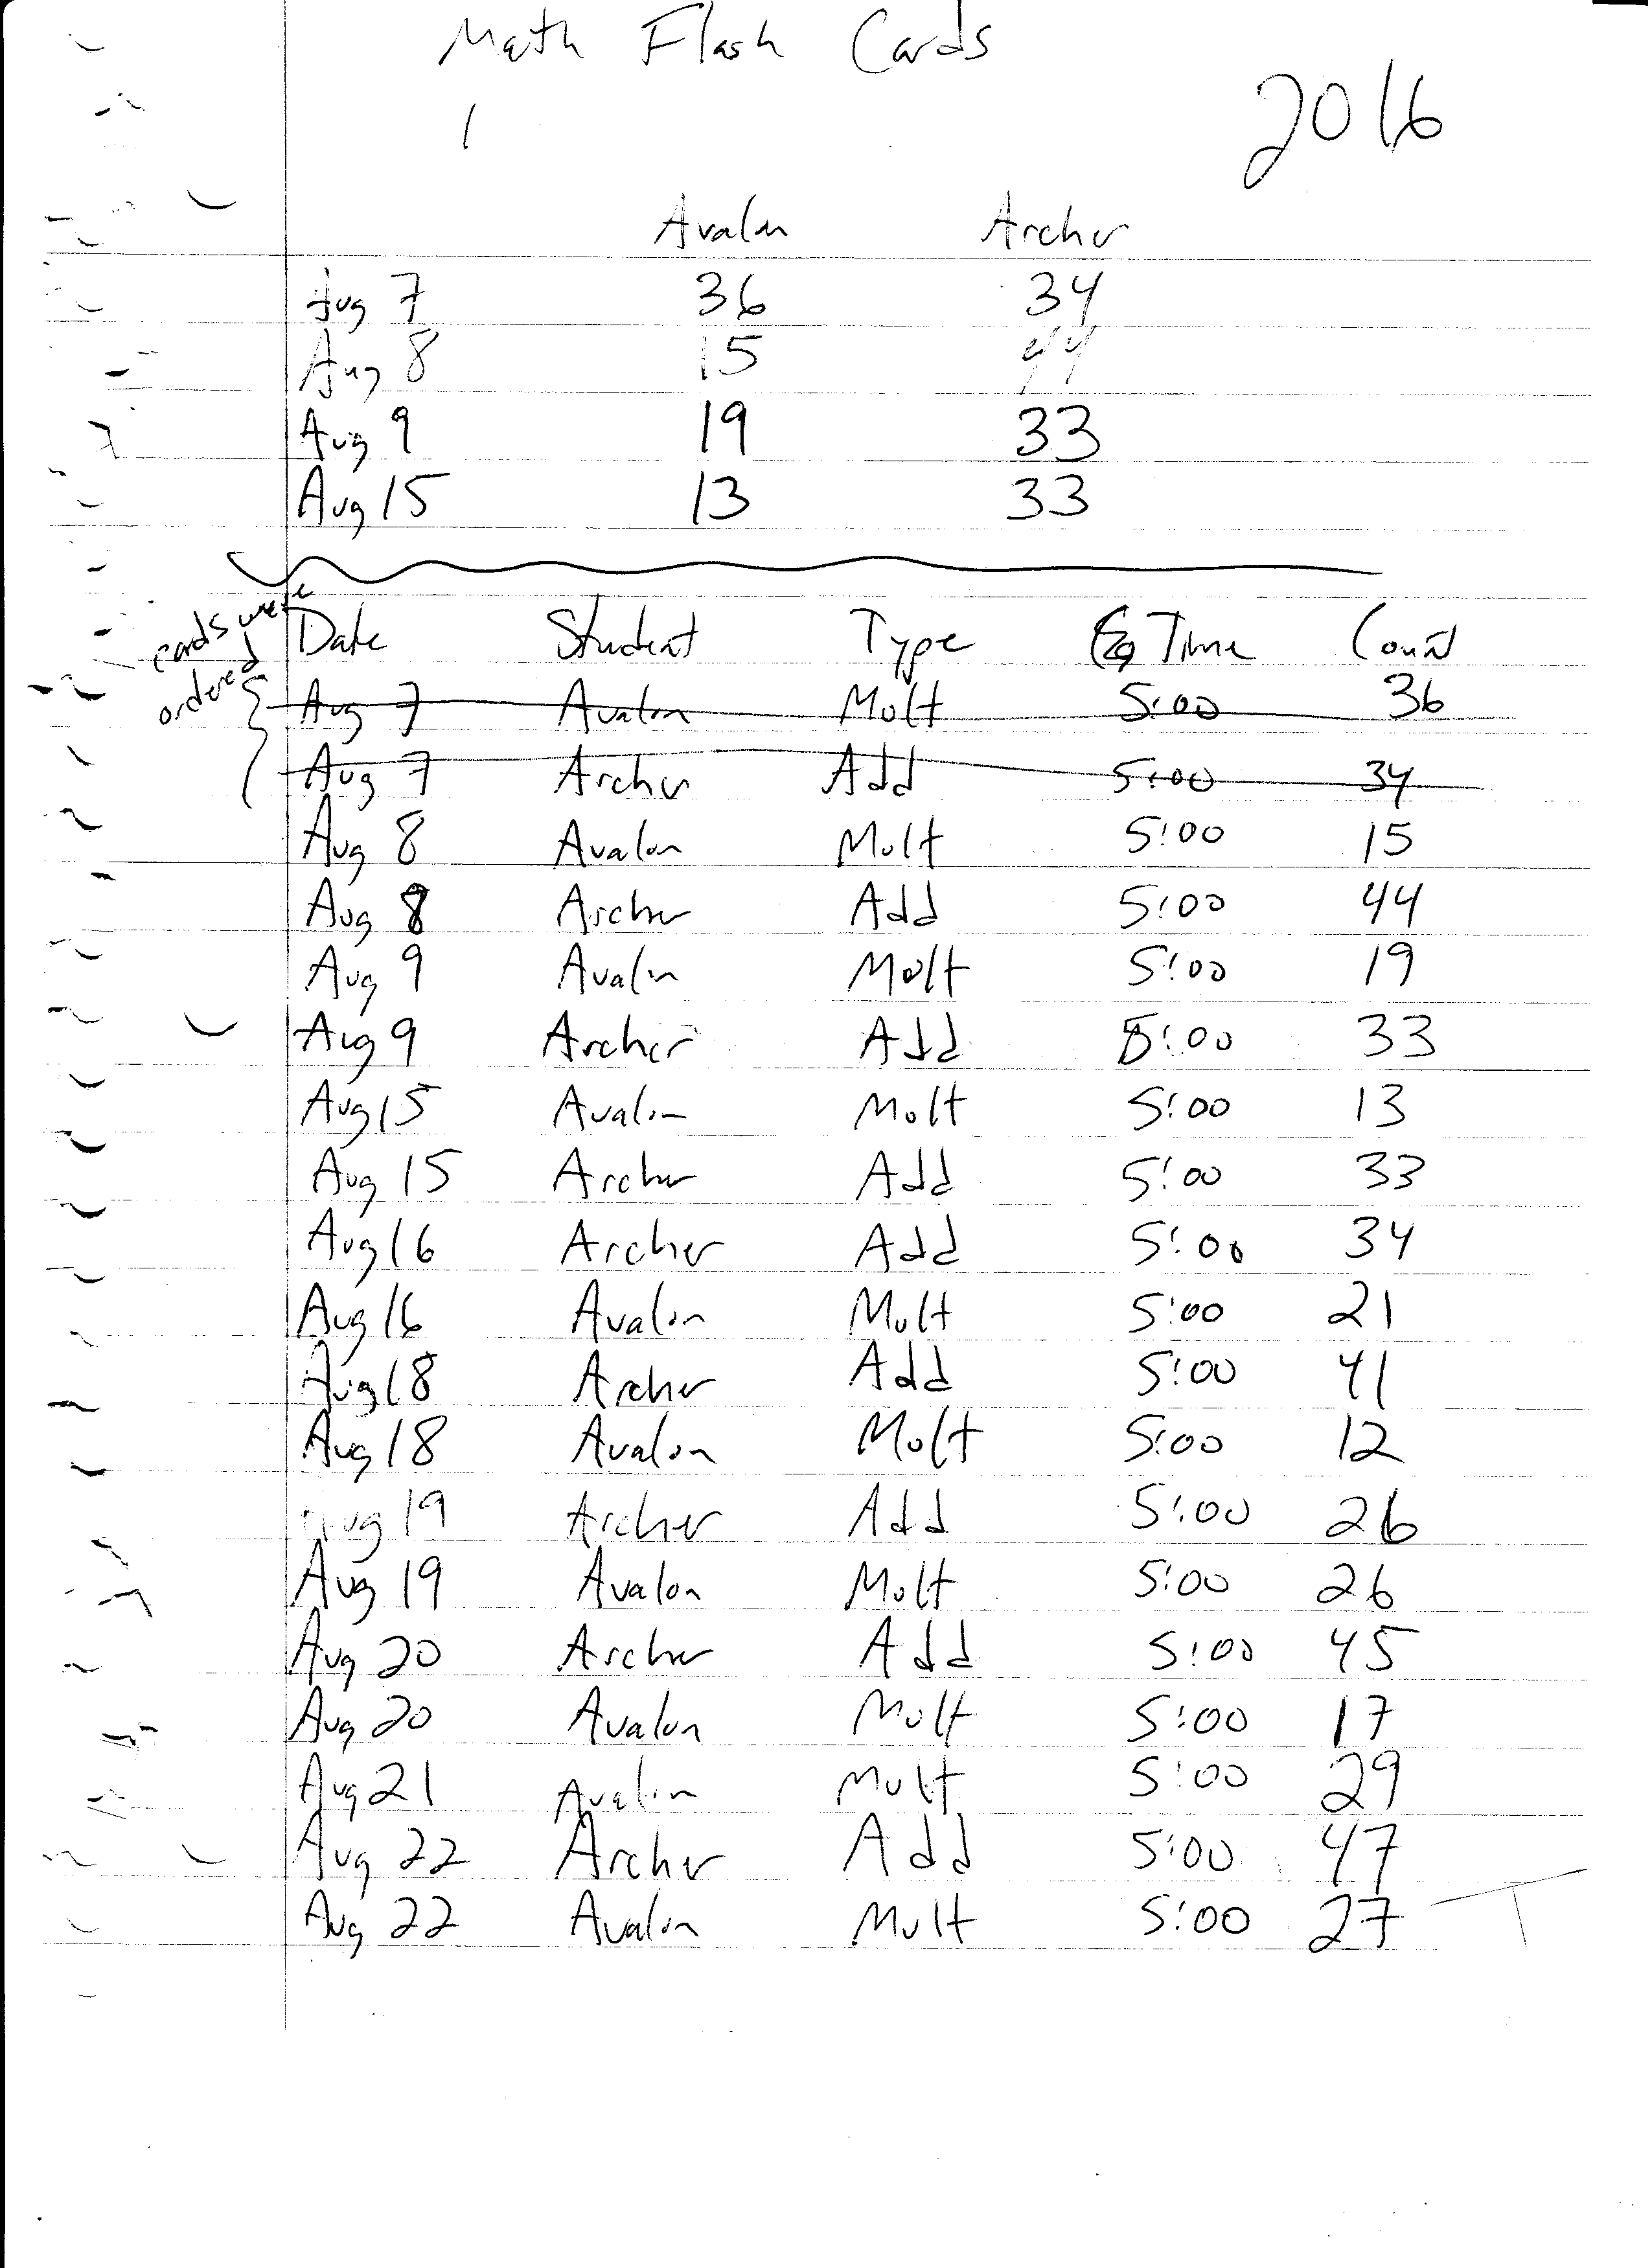 Math Flash Cards
2016
Avalon Archer
Aug 7 36 34
Aug 8 15 44
Aug 9 19 33
Aug 15 13 33
cards were
ordered
Date Student Type Time Count
Aug 7 Avalon Mult 5:00 36
Aug 7 Archer Add 5:00 34
Aug 8 Avalon Mult 5:00 15
Aug 8 Archer Add 5:00 44
Aug 9 Avalon Mult 5:00 19
Aug 9 Archer Add 5:00 33
Aug 15 Avalon Mult 5:00 13
Aug 15 Archer Add 5:00 33
Aug 16 Archer Add 5:00 34
Aug 16 Avalon Mult 5:00 21
Aug 18 Archer Add 5:00 41
Aug 18 Avalon Mult 5:00 12
Aug 19 Archer Add 5:00 26
Aug 19 Avalon Mult 5:00 26
Aug 20 Archer Add 5:00 45
Aug 20 Avalon Mult 5:00 17
Aug 21 Avalon Mult 5:00 29
Aug 22 Archer Add 5:00 47
Aug 22 Avalon Mult 5:00 27